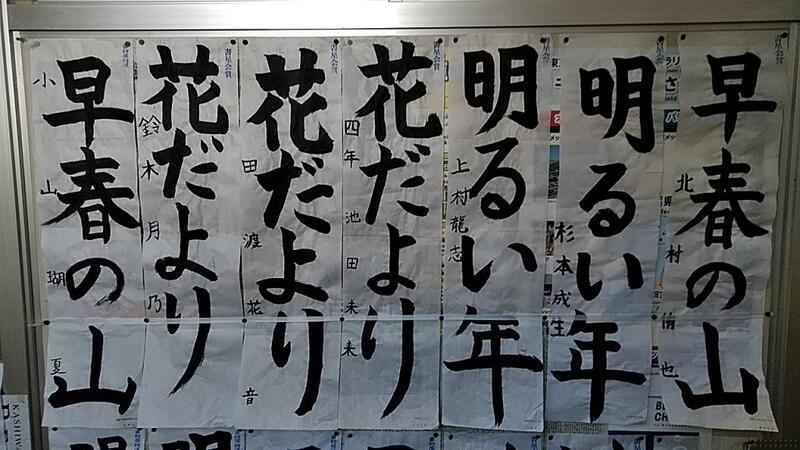 書星会賞
早春の山
北村侑也
書星会賞
明るい年
杉本成生
書星会賞
明るい年
上村龍志
書星会賞
花だより
四年 池田未来
書星会賞
花だより
田渡花音
書星会賞
花だより
鈴木月乃
早春の山
小山瑚夏
KASHIW